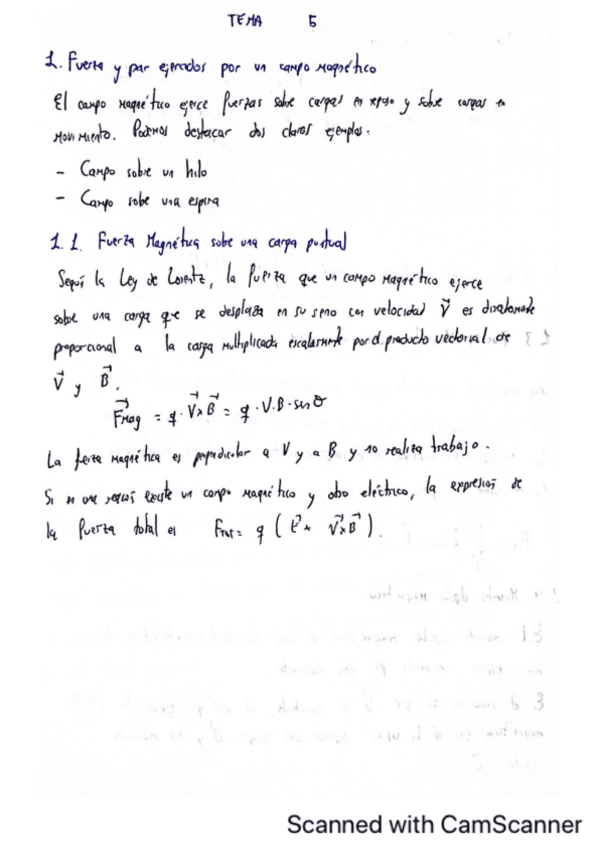 TEMA 5
1. Fuerza y par ejercidos por un campo magnético
El campo magnético ejerce fuerzas sobre cargas en reposo y sobre cargas en
movimiento. Podemos destacar dos claros ejemplos.
- Campo sobre un hilo
- Campo sobe una espira
1.1. Fuerza Magnética sobre una carga puntual
Según la Ley de Lorentz, la fuerza que un campo magnético ejerce
sobre una carga que se desplaza en su seno con velocidad V⃗ es directamente
proporcional a la carga multiplicada escalarmente por el producto vectorial de
V⃗ y B⃗.
F⃗mag = q · V⃗×B⃗ = q · V.B · sen θ
La ferza magnética es perpendicular a V y a B y no realiza trabajo.
Si en una región existe un campo magnético y otro eléctrico, la expresión de
la fuerza total es Ftot = q ( E⃗ + V⃗×B⃗ ).
Scanned with CamScanner